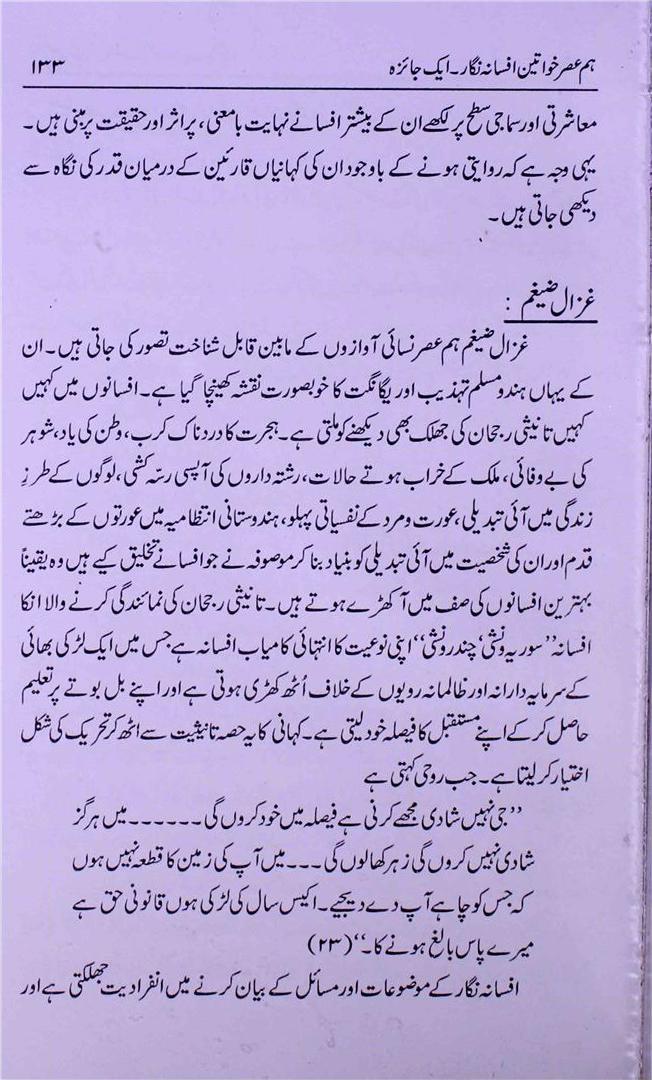 ہم عصر خواتین افسانہ نگار۔ ایک جائزہ ۱۳۳
معاشرتی اور سماجی سطح پر لکھے ان کے بیشتر افسانے نہایت بامعنی، پر اثر اور حقیقت پر مبنی ہیں۔
یہی وجہ ہے کہ روایتی ہونے کے باوجود ان کی کہانیاں قارئین کے درمیان قدر کی نگاہ سے
دیکھی جاتی ہیں۔
غزال ضیغم :
غزال ضیغم ہم عصر نسائی آوازوں کے مابین قابل شناخت تصور کی جاتی ہیں۔ ان
کے یہاں ہندو مسلم تہذیب اور یگانگت کا خوبصورت نقشہ کھینچا گیا ہے۔ افسانوں میں کہیں
کہیں تانیثی رجحان کی جھلک بھی دیکھنے کو ملتی ہے۔ ہجرت کا دردناک کرب، وطن کی یاد، شوہر
کی بے وفائی، ملک کے خراب ہوتے حالات، رشتہ داروں کی آپسی رسّہ کشی، لوگوں کے طرزِ
زندگی میں آئی تبدیلی، عورت و مرد کے نفسیاتی پہلو، ہندوستانی انتظامیہ میں عورتوں کے بڑھتے
قدم اور ان کی شخصیت میں آئی تبدیلی کو بنیاد بنا کر موصوفہ نے جو افسانے تخلیق کیے ہیں وہ یقیناً
بہترین افسانوں کی صف میں آ کھڑے ہوتے ہیں۔ تانیثی رجحان کی نمائندگی کرنے والا انکا
افسانہ ’’سوریہ ونشی‘ چندر ونشی‘‘ اپنی نوعیت کا انتہائی کامیاب افسانہ ہے جس میں ایک لڑکی بھائی
کے سرمایہ دارانہ اور ظالمانہ رویوں کے خلاف اُٹھ کھڑی ہوتی ہے اور اپنے بل بوتے پر تعلیم
حاصل کر کے اپنے مستقبل کا فیصلہ خود لیتی ہے۔ کہانی کا یہ حصہ تانیثیت سے اٹھ کر تحریک کی شکل
اختیار کر لیتا ہے۔ جب روحی کہتی ہے
’’جی نہیں شادی مجھے کرنی ہے فیصلہ میں خود کروں گی۔۔۔۔۔۔ میں ہرگز
شادی نہیں کروں گی زہر کھا لوں گی۔۔۔ میں آپ کی زمین کا قطعہ نہیں ہوں
کہ جس کو چاہے آپ دے دیجیے۔ اکیس سال کی لڑکی ہوں قانونی حق ہے
میرے پاس بالغ ہونے کا۔‘‘ (۲۳)
افسانہ نگار کے موضوعات اور مسائل کے بیان کرنے میں انفرادیت جھلکتی ہے اور